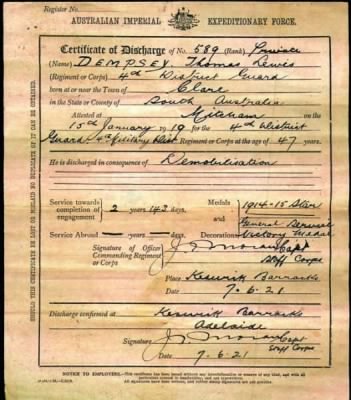 Register No.
AUSTRALIAN IMPERIAL EXPEDITIONARY FORCE.
Certificate of Discharge of No. 589 (Rank) Private
(Name) DEMPSEY. Thomas Lewis
(Regiment or Corps) 4th District Guard
born at or near the Town of Clare
in the State or County of South Australia
Attested at Mitcham on
15th January 1919 for the 4th District
Guard at the age of 47 years.
He is discharged in consequence of Demobilisation
Service towards completion of engagement 2 years 143 days. Medals 1914-15 Star
General Service
Service Abroad — years — days. Decorations Victory Medal
Signature of Officer Commanding Regiment or Corps J. Moran Capt
Staff Corps
Place Keswick Barracks
Date 7.6.21
Discharge confirmed at Keswick Barracks
Adelaide
Signature J. Moran Capt
Staff Corps
Date 7.6.21
SHOULD THIS CERTIFICATE BE LOST OR MISLAID NO DUPLICATE OF IT CAN BE OBTAINED.